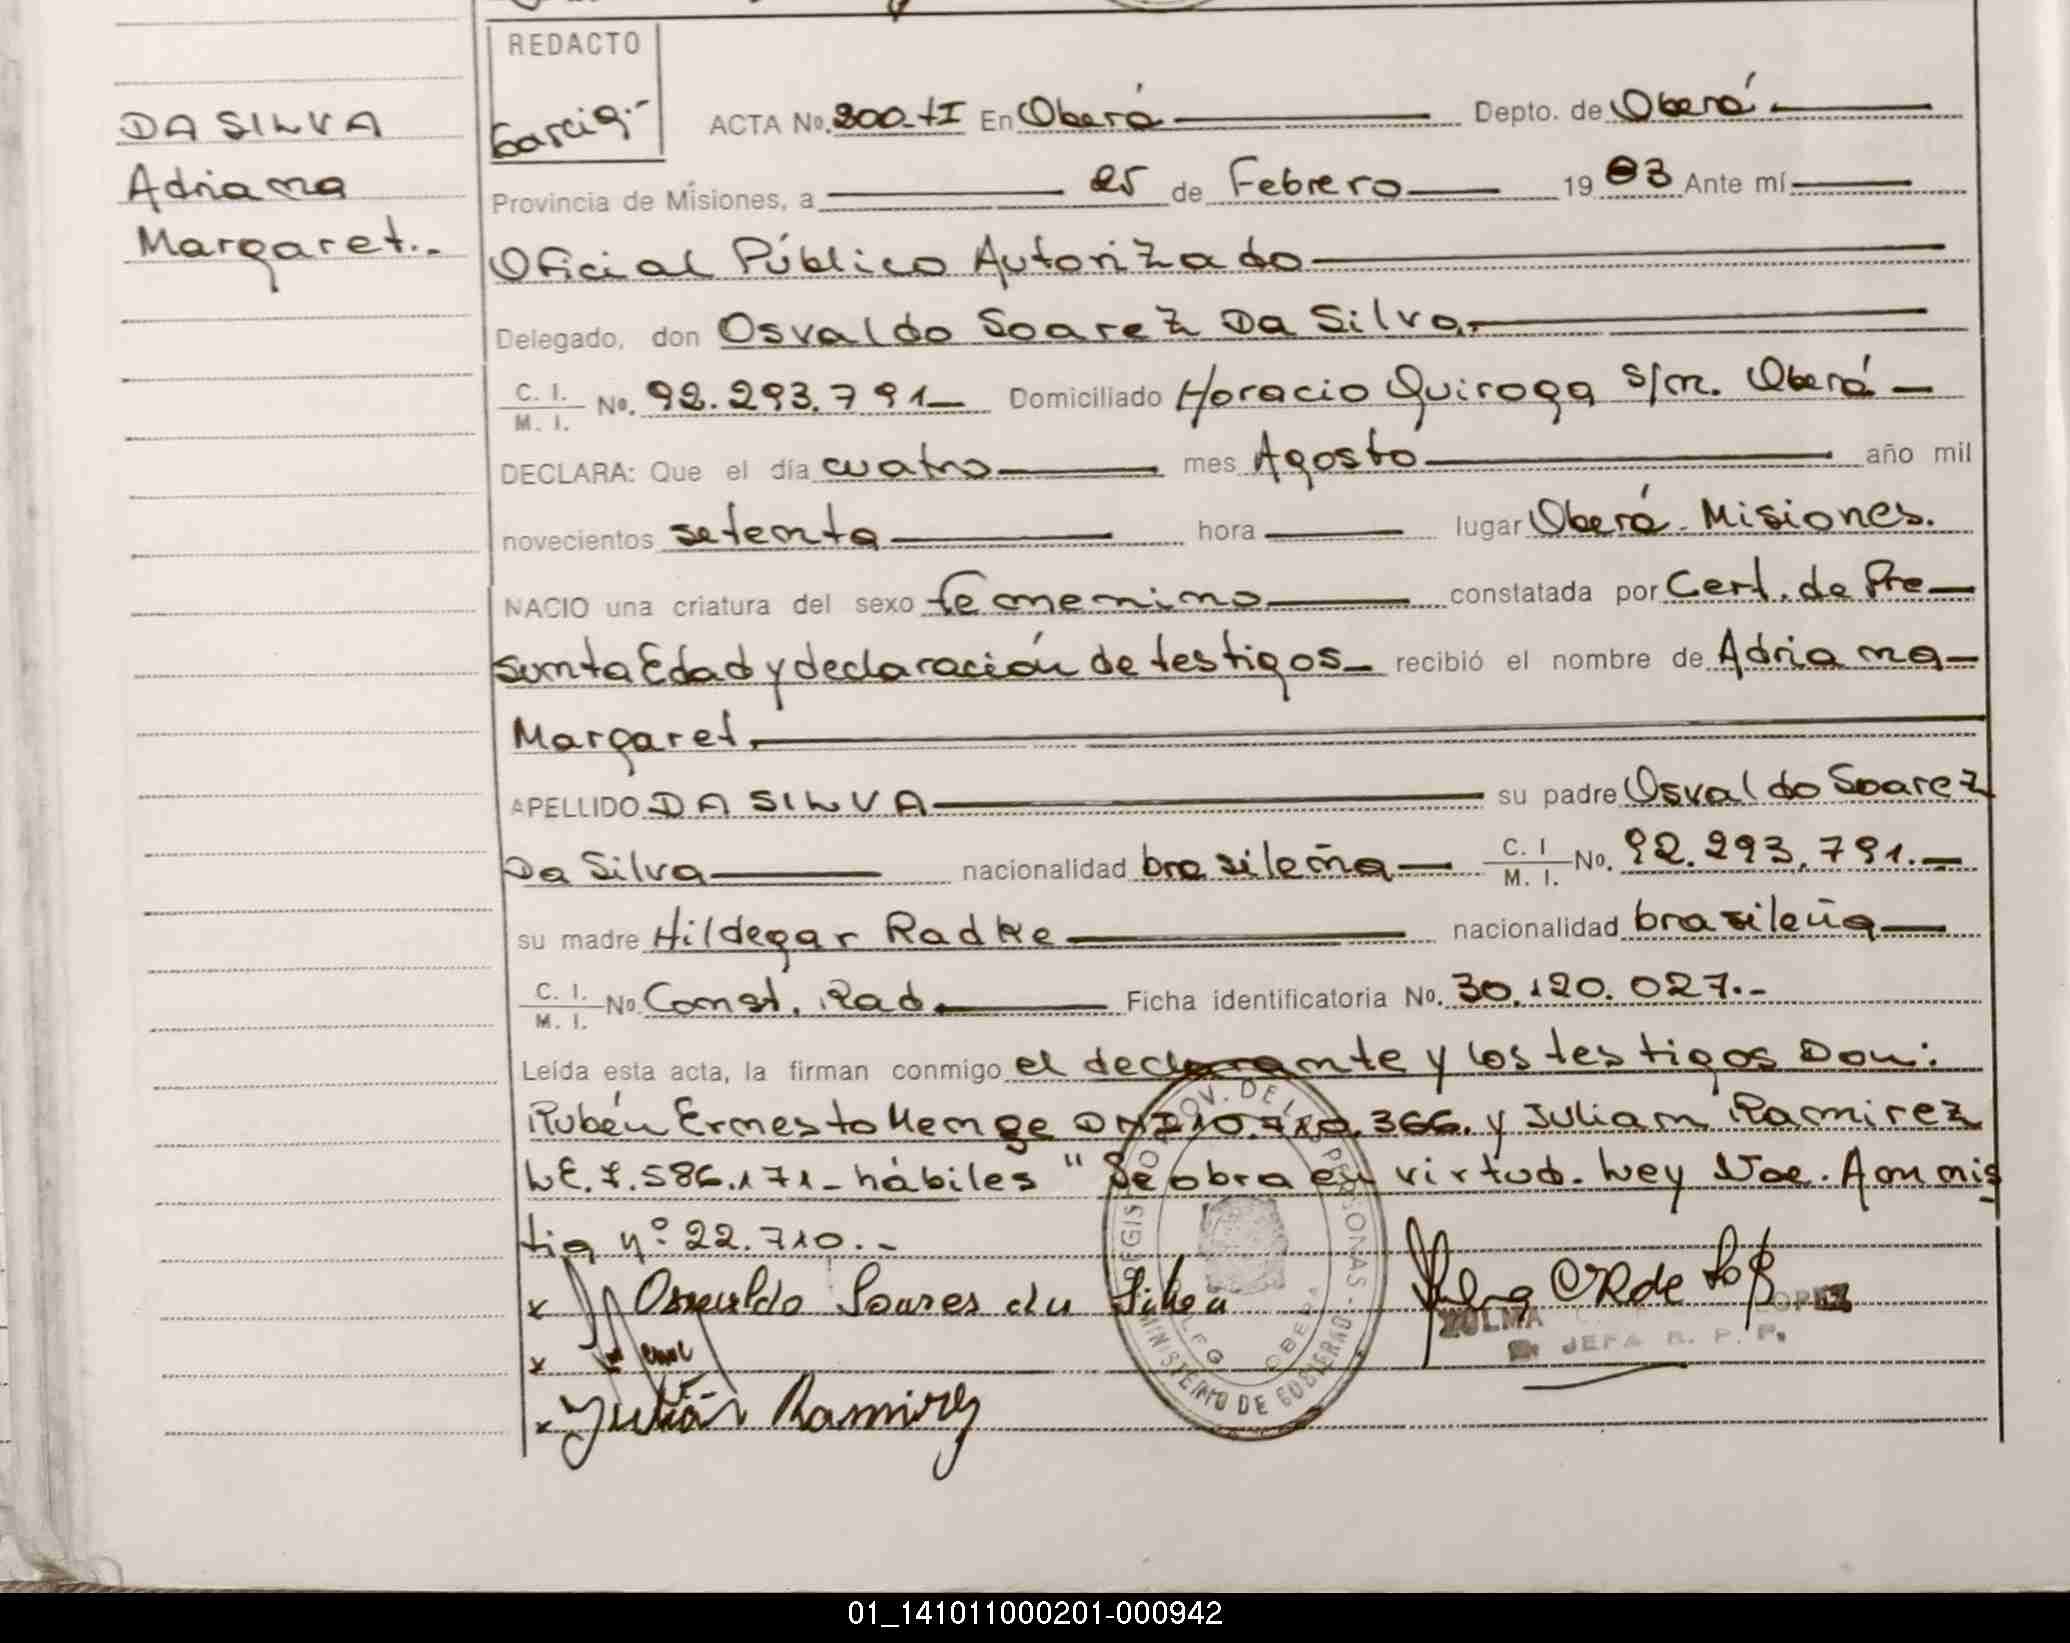 REDACTO
Garcia.-
DA SILVA
Adriana
Margaret.-
ACTA No. 200.-tI En Oberá Depto. de Oberá
Provincia de Misiones, a 25 de Febrero 1983 Ante mí
Oficial Público Autorizado
Delegado, don Osvaldo Soarez Da Silva.
C. I. / M. I. No. 92.293.791 Domiciliado Horacio Quiroga s/n. Oberá
DECLARA: Que el día cuatro mes Agosto año mil
novecientos setenta hora lugar Oberá-Misiones.
NACIO una criatura del sexo femenino constatada por Cert. de Pre-
sunta Edad y declaración de testigos recibió el nombre de Adriana
Margaret.
APELLIDO DA SILVA su padre Osvaldo Soarez
Da Silva nacionalidad brasileña C. I / M. I. No. 92.293.791.-
su madre Hildegar Radke nacionalidad brasileña
C. I. / M. I. No Const. Rad. Ficha identificatoria No. 30.120.027.-
Leída esta acta, la firman conmigo el declarante y los testigos Don:
Rubén Ernesto Menge DNI 10.710.366. y Julian Ramirez
LE. 7.586.171-hábiles "Se obra en virtud. Ley Nac. Amnis
tia nº 22.710.-
x Osvaldo Soares da Silva
x
x Julián Ramirez
ZULMA LOPEZ
JEFA R. P. P.
REGISTRO PROV. DE LAS PERSONAS - MINISTERIO DE GOBIERNO
DELEG OBERA
01_141011000201-000942